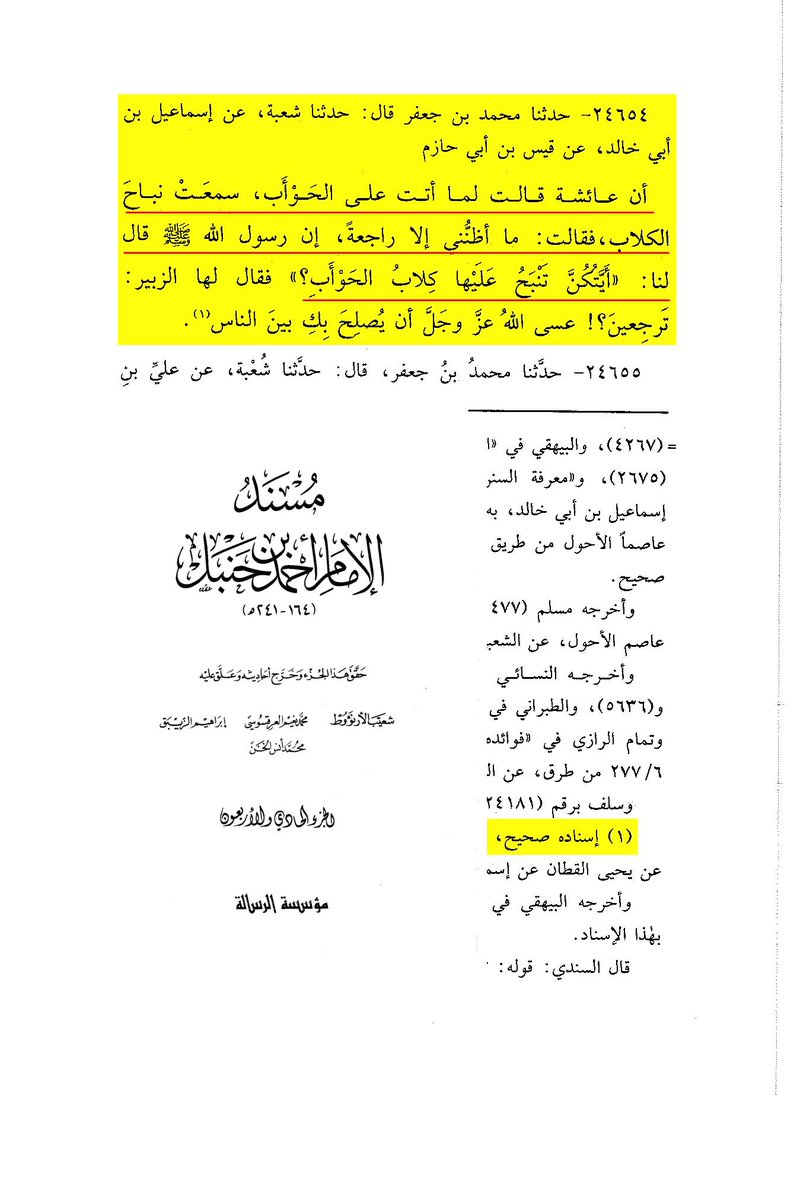 ٢٤٦٥٤- حدثنا محمد بن جعفر قال: حدثنا شعبة، عن إسماعيل بن
أبي خالد، عن قيس بن أبي حازم
أن عـائشـة قـالـت لمـا أتـت علـى الحَـوْأَب، سمعَـتْ نبـاحَ
الكلاب، فقالت: ما أظنُّني إلا راجعةً، إن رسول الله ﷺ قال
لنا: «أَيَّتُكُنَّ تَنْبَحُ عَلَيْها كِلابُ الحَوْأَبِ؟» فقال لها الزبير:
تَرجِعينَ؟! عسى اللهُ عزَّ وجَلَّ أن يُصلِحَ بِكِ بينَ الناس(١).
٢٤٦٥٥- حدَّثنا محمدُ بنُ جعفر، قال: حدَّثنا شُعْبة، عن عليِّ بنِ
= (٤٢٦٧)، والبيهقي في «ا
(٢٦٧٥)، و«معرفة السنر
إسماعيل بن أبي خالد، به
عاصماً الأحول من طريق
صحيح.
وأخرجه مسلم (٤٧٧
عاصم الأحول، عن الشعب
وأخـرجـه النسـائـي
و(٥٦٣٦)، والطبراني في
وتمام الرازي في «فوائده
٢٧٧/٦ من طرق، عن ال
وسلف برقم (٢٤١٨١
(١) إسناده صحيح،
عن يحيى القطان عن إسم
وأخرجه البيهقي في
بهٰذا الإسناد.
قال السندي: قوله:
مُسْنَدُ
الإمام أحمد بن حنبل
(١٦٤-٢٤١هـ)
حَقَّقَ هَذَا الجُزْءَ وَخَرَّجَ أحَادِيثَه وَعَلَّقَ عَلَيْه
شعيب الأرنؤوط محمد نعيم العرقسوسي إبراهيم الزيبق
محمد أنس الخن
الجزء الحادي والأربعون
مؤسسة الرسالة